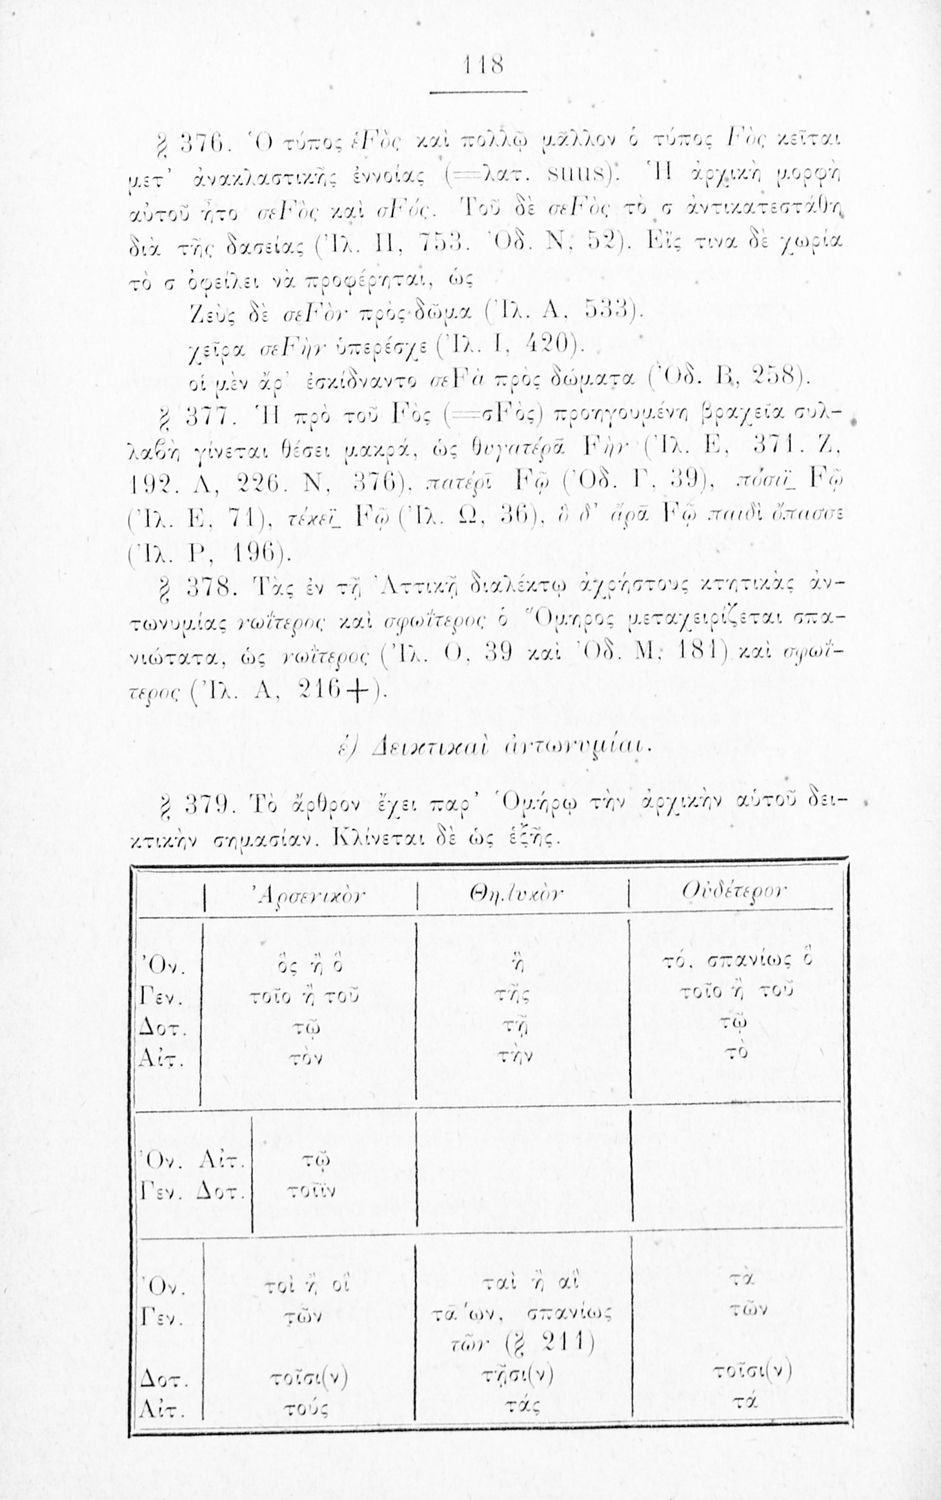 118
§ 376. Ὁ τύπος ἑFὸς καὶ πολλῷ μᾶλλον ὁ τύπος Fὸς κεῖται
μετ’ ἀνακλαστικῆς ἐννοίας (=λατ. suus). Ἡ ἀρχικὴ μορφὴ
αὐτοῦ ἦτο σεFὸς καὶ σFός. Τοῦ δὲ σεFὸς τὸ σ ἀντικατεστάθη
διὰ τῆς δασείας (Ἰλ. Π, 753. Ὀδ. Ν, 52). Εἴς τινα δὲ χωρία
τὸ σ ὀφείλει νὰ προφέρηται, ὡς
Ζεὺς δὲ σεFὸν πρὸς δῶμα (Ἰλ. Α, 533).
χεῖρα σεFὴν ὑπερέσχε (Ἰλ. Ι, 420).
οἱ μὲν ἄρ’ ἐσκίδναντο σεFὰ πρὸς δώματα (Ὀδ. Β, 258).
§ 377. Ἡ πρὸ τοῦ Fὸς (=σFὸς) προηγουμένη βραχεῖα συλ-
λαβὴ γίνεται θέσει μακρά, ὡς θυγατέρᾱ Fὴν (Ἰλ. Ε, 371. Ζ,
192. Λ, 226. Ν, 376). πατέρῑ Fῷ (Ὀδ. Γ, 39), πόσιϊ_ Fῷ
(Ἰλ. Ε, 71), τέκεϊ_ Fῷ (Ἰλ. Ω, 36), ὃ δ’ ἄρᾱ Fῷ παιδὶ ὄπασσε
(Ἰλ. Ρ, 196).
§ 378. Τὰς ἐν τῇ Ἀττικῇ διαλέκτῳ ἀχρήστους κτητικὰς ἀν-
τωνυμίας νωΐτερος καὶ σφωΐτερος ὁ Ὅμηρος μεταχειρίζεται σπα-
νιώτατα, ὡς νωΐτερος (Ἰλ. Ο, 39 καὶ Ὀδ. Μ, 181) καὶ σφωΐ-
τερος (Ἰλ. Α, 216+).
έ) Δεικτικαὶ ἀντωνυμίαι.
§ 379. Τὸ ἄρθρον ἔχει παρ’ Ὁμήρῳ τὴν ἀρχικὴν αὐτοῦ δει-
κτικὴν σημασίαν. Κλίνεται δὲ ὡς ἑξῆς.
Ἀρσενικὸν Θηλυκὸν Οὐδέτερον
Ὀν. ὃς ἢ ὃ ἣ τό, σπανίως ὃ
Γεν. τοῖο ἢ τοῦ τῆς τοῖο ἢ τοῦ
Δοτ. τῷ τῇ τῷ
Αἰτ. τὸν τὴν τὸ
Ὀν. Αἰτ. τῷ
Γεν. Δοτ. τοῖϊν
Ὀν. τοὶ ἢ οἳ ταὶ ἢ αἳ τὰ
Γεν. τῶν τᾱ́ων, σπανίως τῶν
τῶν (§ 211)
Δοτ. τοῖσι(ν) τῇσι(ν) τοῖσι(ν)
Αἰτ. τούς τάς τά